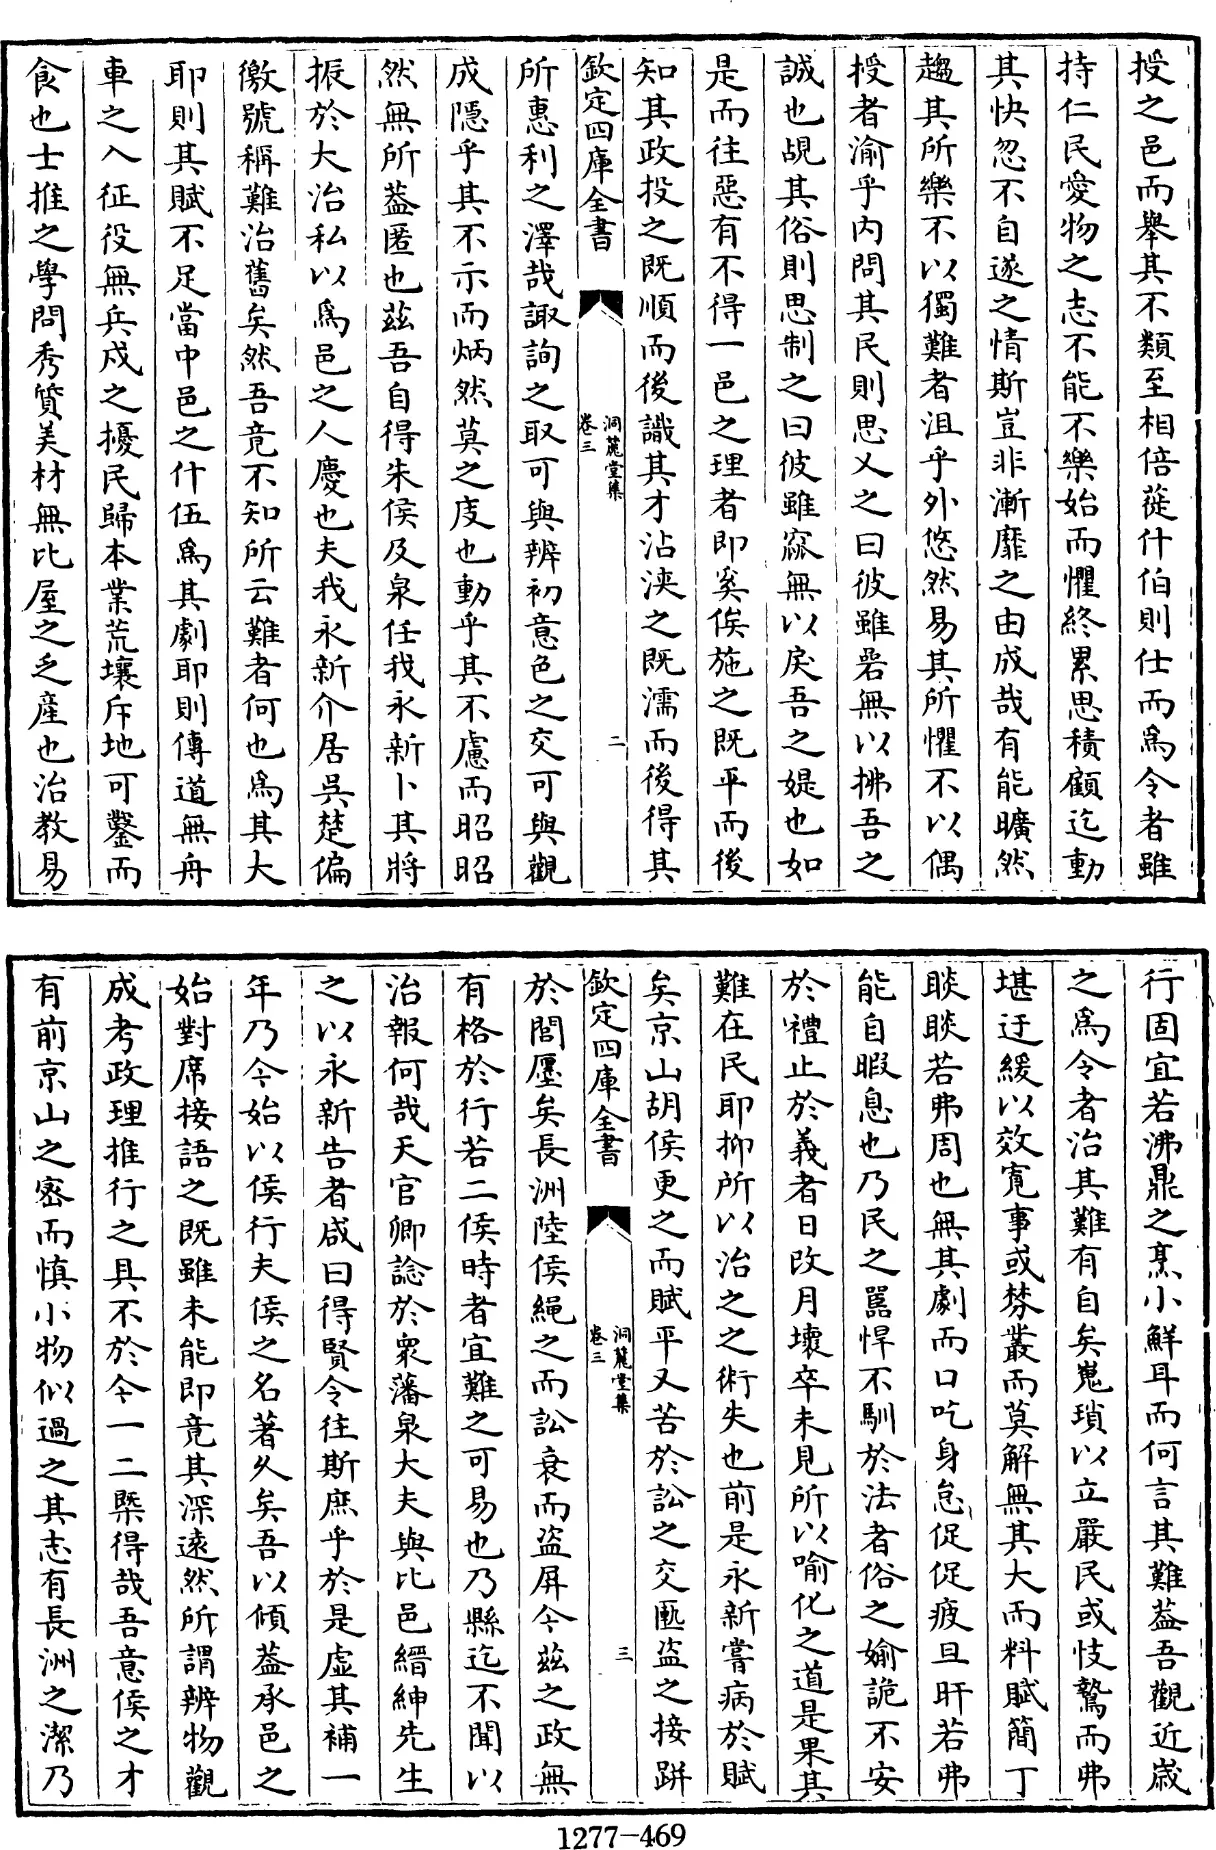 授之邑而舉其不類至相倍蓰什伯則仕而爲令者雖
持仁民愛物之志不能不樂始而懼終累思積顧迄動
其快忽不自遂之情斯豈非漸靡之由成哉有能曠然
趨其所樂不以獨難者沮乎外悠然易其所懼不以偶
授者渝乎内問其民則思乂之曰彼雖喦無以拂吾之
誠也覘其俗則思制之曰彼雖窳無以戾吾之媞也如
是而往惡有不得一邑之理者即奚俟施之既平而後
知其政投之既順而後識其才沾浹之既濡而後得其
欽定四庫全書
洞麓堂集
卷三
二
所惠利之澤哉諏詢之取可與辨初意色之交可與觀
成隱乎其不示而炳然莫之庋也動乎其不慮而昭昭
然無所蓋匿也茲吾自得朱侯及泉任我永新卜其將
振於大治私以爲邑之人慶也夫我永新介居吳楚偏
徼號稱難治舊矣然吾竟不知所云難者何也爲其大
耶則其賦不足當中邑之什伍爲其劇耶則傳道無舟
車之入征役無兵戍之擾民歸本業荒壤斥地可鑿而
食也士推之學問秀質美材無比屋之乏產也治教易
行固宜若沸鼎之烹小鮮耳而何言其難蓋吾觀近嵗
之爲令者治其難有自矣嵬瑣以立嚴民或忮驁而弗
堪迂緩以效寛事或棼叢而莫解無其大而料賦簡丁
睒睒若弗周也無其劇而口吃身怠促促疲旦旰若弗
能自暇息也乃民之嚚悍不馴於法者俗之媮詭不安
於禮止於義者日改月壞卒未見所以喻化之道是果其
難在民耶抑所以治之之術失也前是永新嘗病於賦
矣京山胡侯更之而賦平又苦於訟之交匭盜之接跰
欽定四庫全書
洞麓堂集
卷三
三
於閭廛矣長洲陸侯繩之而訟衰而盜屏今茲之政無
有格於行若二侯時者宜難之可易也乃縣迄不聞以
治報何哉天官卿諗於衆藩臬大夫與比邑縉紳先生
之以永新告者咸曰得賢令往斯庶乎於是虛其補一
年乃今始以侯行夫侯之名著久矣吾以傾蓋承邑之
始對席接語之既雖未能即竟其深遠然所謂辨物觀
成考政理推行之具不於今一二槩得哉吾意侯之才
有前京山之密而慎小物似過之其志有長洲之潔乃
1277-469